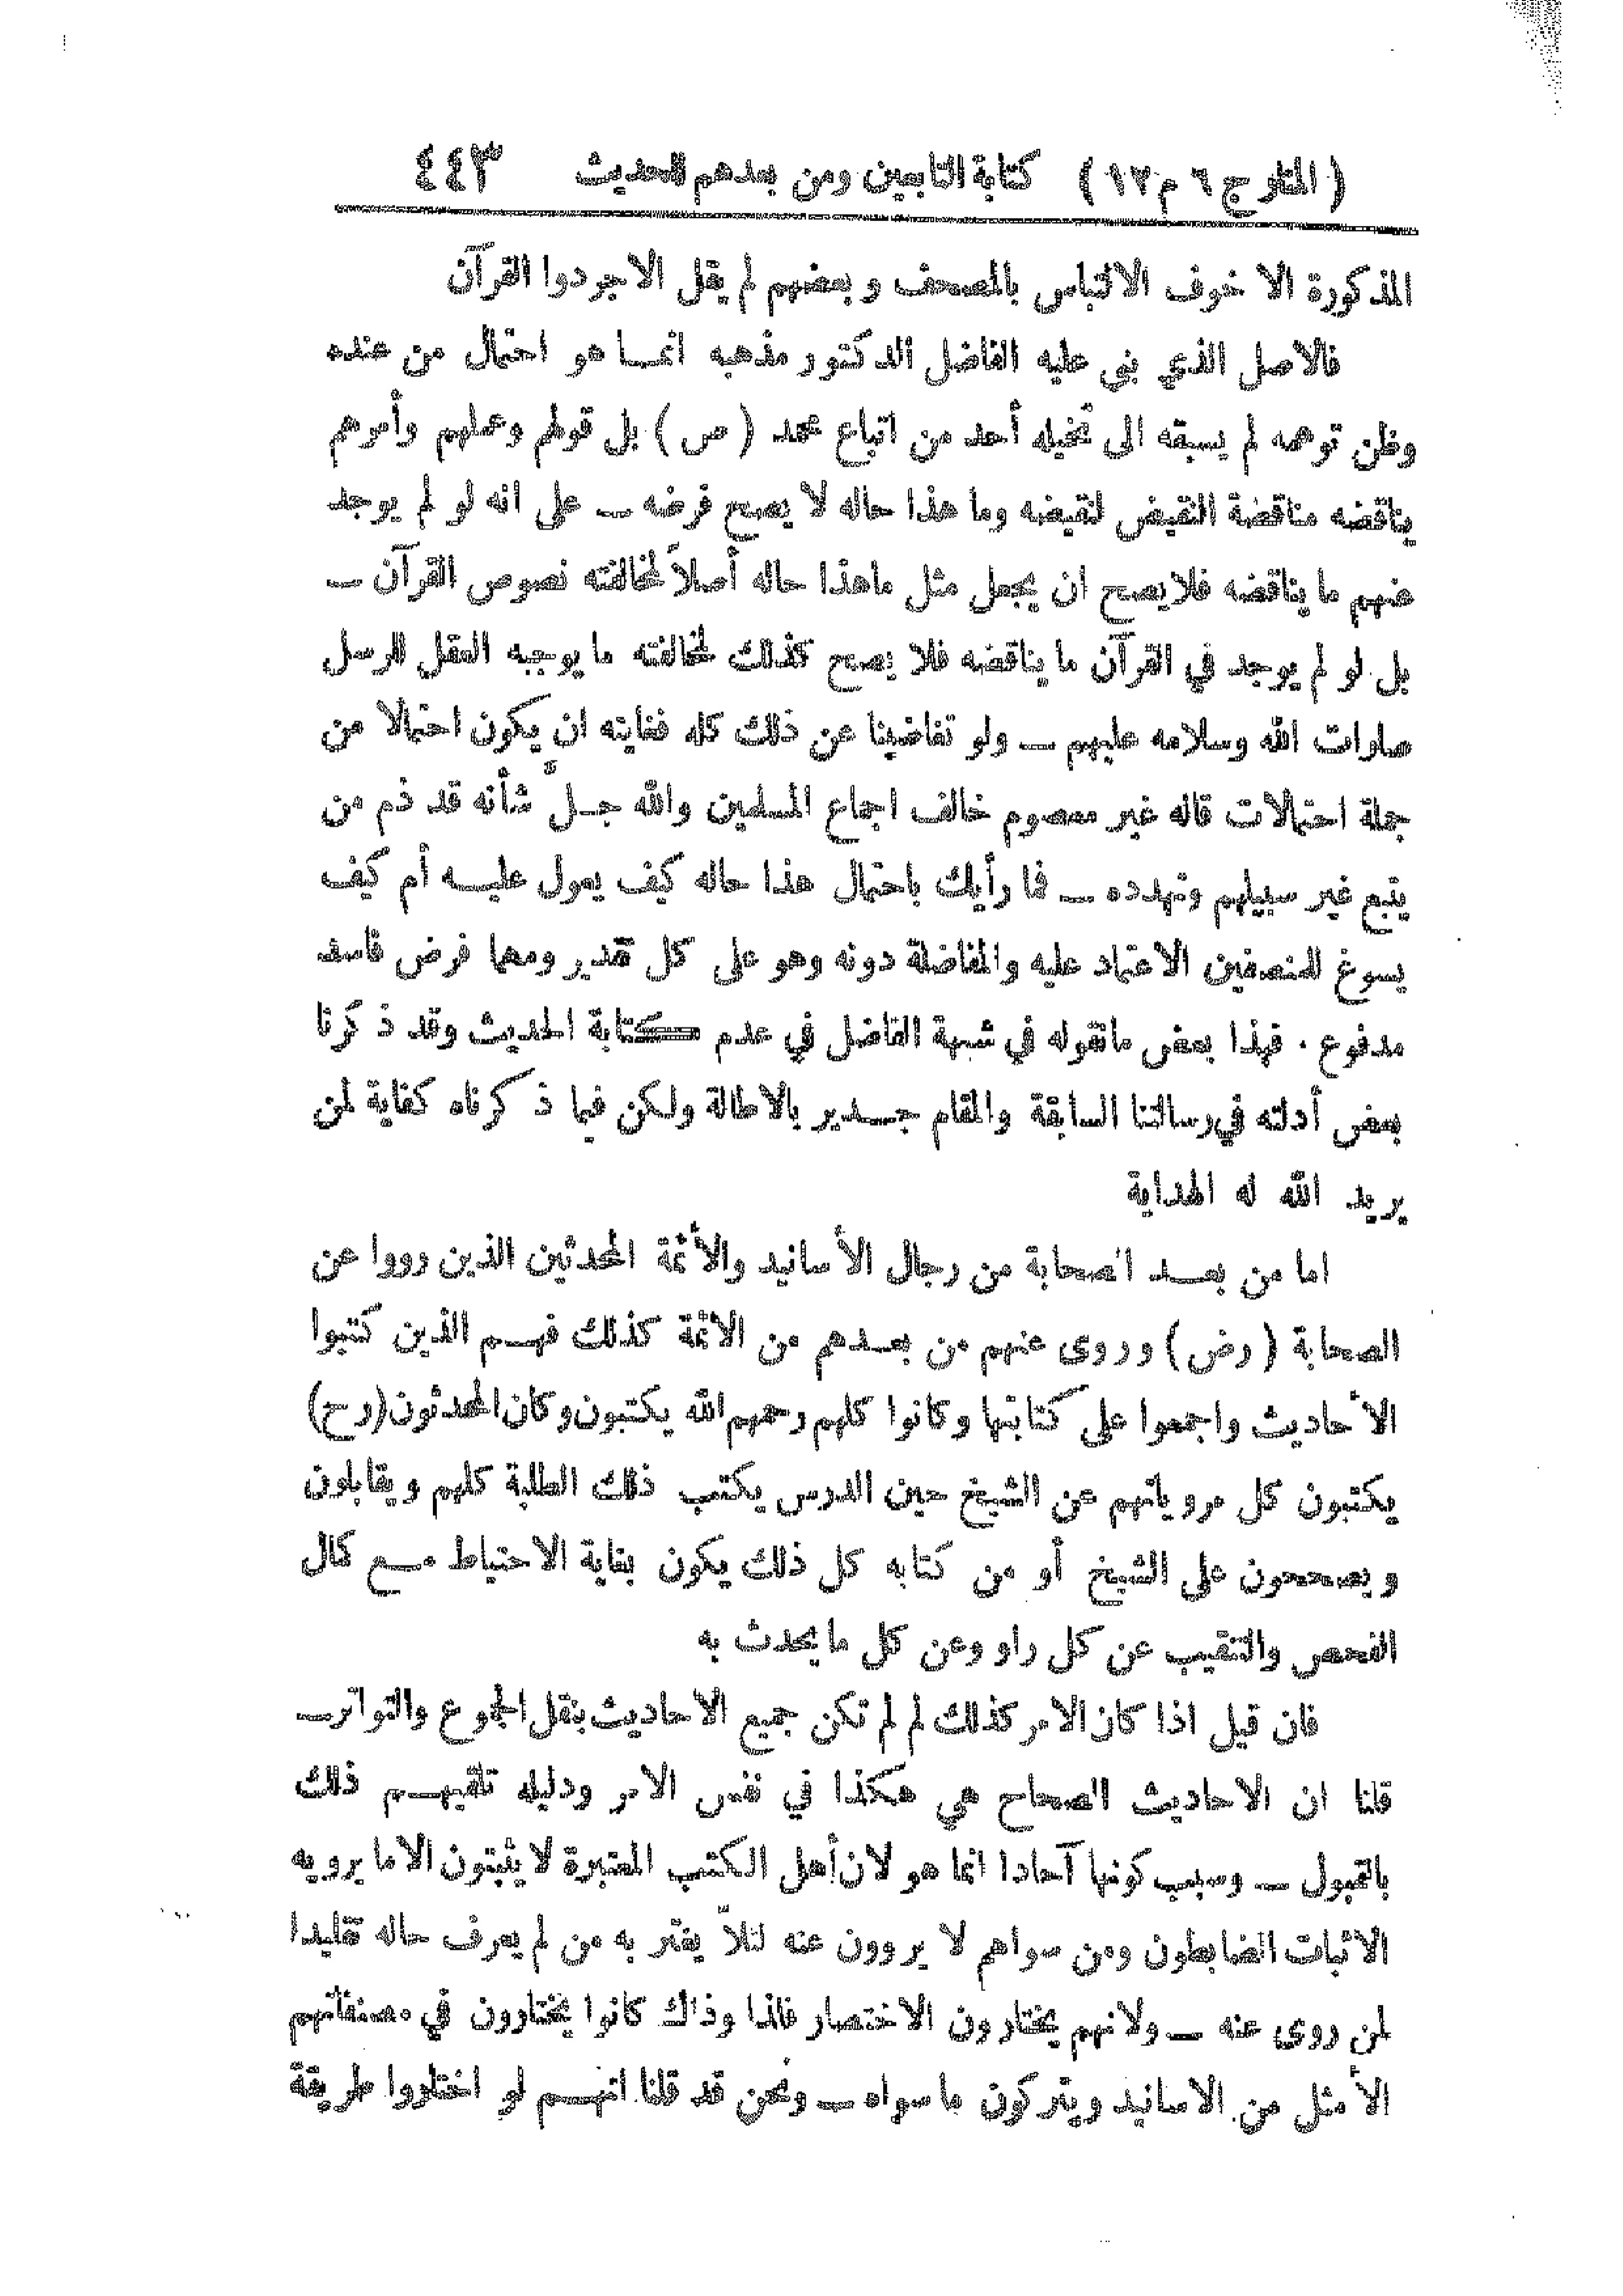 ( المنار ج ٦ م ١٢ ) كتابة التابعين ومن بعدهم للحديث ٤٤٣
المذكورة الا خوف الالتباس بالمصحف وبعضهم لم يقل الا جردوا القرآن
فالاصل الذي بنى عليه الفاضل الدكتور مذهبه انما هو احتمال من عنده
وظن توهمه لم يسبقه الى تخيله أحد من اتباع محمد ( ص ) بل قولهم وعملهم وأمرهم
يناقضه مناقضة النقيض لنقيضه وما هذا حاله لا يصح فرضه — على انه لو لم يوجد
عنهم ما يناقضه فلا يصح ان يجعل مثل ماهذا حاله أصلاً لمخالفته نصوص القرآن —
بل لو لم يوجد في القرآن ما يناقضه فلا يصح كذلك لمخالفته ما يوجبه العقل للرسل
صلوات الله وسلامه عليهم — ولو تغاضينا عن ذلك كله فغايته ان يكون احتمالا من
جملة احتمالات قاله غير معصوم خالف اجماع المسلمين والله جلَّ شأنه قد ذم من
يتبع غير سبيلهم وتهدده — فما رأيك باحتمال هذا حاله كيف يعول عليه أم كيف
يسوغ للمنصفين الاعتماد عليه والمناضلة دونه وهو على كل تقدير ومهما فرض فاسد
مدفوع . فهذا بعض مانقوله في شبهة الفاضل في عدم كتابة الحديث وقد ذكرنا
بعض أدلته في رسالتنا السابقة والمقام جدير بالاطالة ولكن فيما ذكرناه كفاية لمن
يريد الله له الهداية
اما من بعد الصحابة من رجال الأسانيد والأئمة المحدثين الذين رووا عن
الصحابة ( رض ) وروى عنهم من بعدهم من الائمة كذلك فهم الذين كتبوا
الأحاديث واجمعوا على كتابتها وكانوا كلهم رحمهم الله يكتبون وكان المحدثون (رح)
يكتبون كل مروياتهم عن الشيخ حين الدرس يكتب ذلك الطلبة كلهم ويقابلون
ويصححون على الشيخ أو من كتابه كل ذلك يكون بغاية الاحتياط مع كمال
الفحص والتنقيب عن كل راو وعن كل مايحدث به
فان قيل اذا كان الامر كذلك لم لم تكن جميع الاحاديث بنقل الجموع والتواتر —
قلنا ان الاحاديث الصحاح هي هكذا في نفس الامر ودليله تلقيهم ذلك
بالقبول — وسبب كونها آحادا انما هو لان أهل الكتب المعتبرة لا يثبتون الا ما يرويه
الاثبات الضابطون ومن سواهم لا يروون عنه لئلاّ يغتر به من لم يعرف حاله تقليدا
لمن روى عنه — ولانهم يختارون الاختصار فلذا وذاك كانوا يختارون في مصنفاتهم
الأمثل من الاسانيد ويتركون ماسواه — ونحن قد قلنا انهم لو اختاروا طريقة